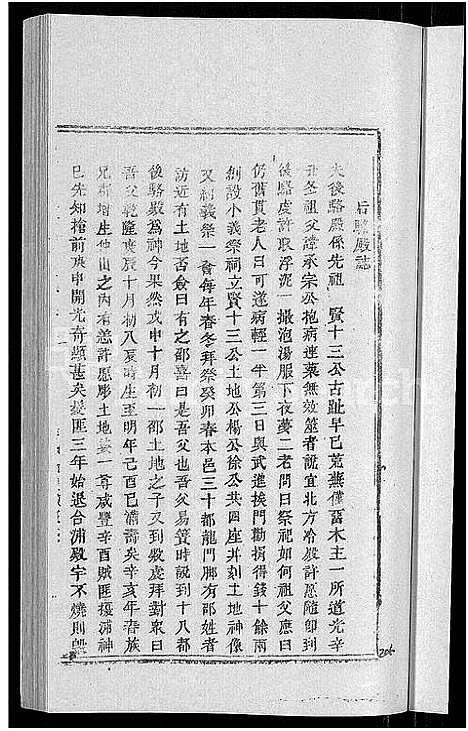 后駱殿誌
夫後駱殿係先祖 賢十三公古趾早已荒蕪僅畱木主一所道光辛
丑冬祖父諱承宗公抱病連藥無效筮者說宜北方冷殿許愿隨卽到
後駱虔許取浮泥一撮泡湯服下夜夢二老問曰祭祀如何祖父應曰
仍舊貫老人曰可遂病輕一半第三日與武進挨門勸捐得錢十餘兩
創設小義祭祠立賢十三公土地公楊公徐公共四座幷刻土地神像
又紹義祭一會每年春冬拜祭癸卯春本邑三十都龍門脚有邵姓者
訪近有土地否僉曰有之邵喜曰是吾父也吾父易簀時說到十八都
後駱殿爲神今果然戊申十月初一邵土地之子又到殿虔拜對衆曰
吾父乾隆庚辰十月初八亥時生至明年己酉已滿壽矣辛亥年春族
兄 增生他山之內有 慈許愿彫土地 一尊咸豐辛酉賊匪擾浦神
已先知拾前庚申開光奇顯甚矣 匪三年始退合浦殿宇不燒則毀
206